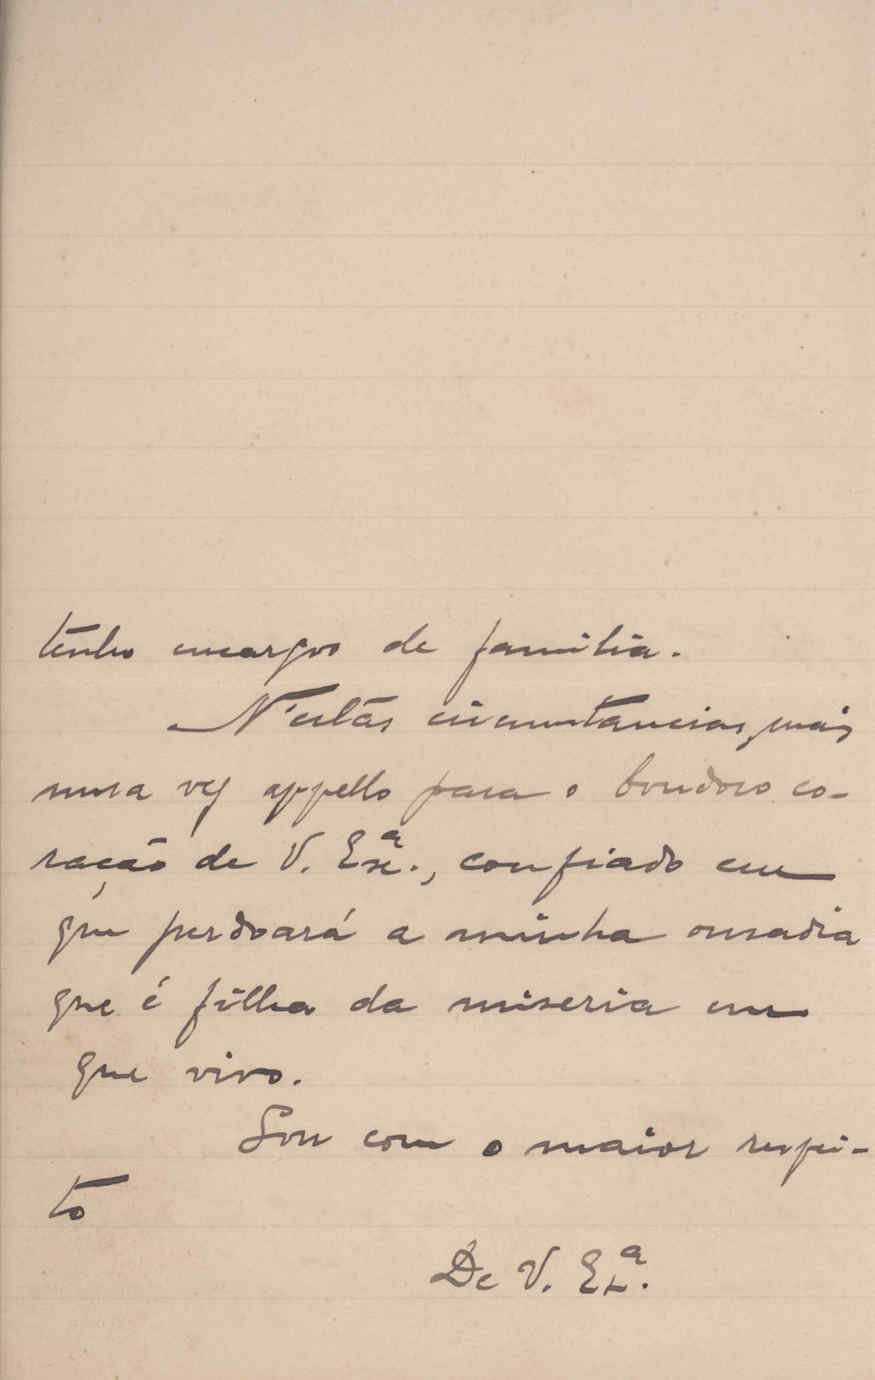 tenho encargos de familia.
N'estas circumstancias, mais
uma vez appello para o bondoso co-
ração de V. Exª., confiado em
que perdoará a minha ousadia
que é filha da miseria em
que vivo.
Sou com o maior respei-
to
De V. Exª.